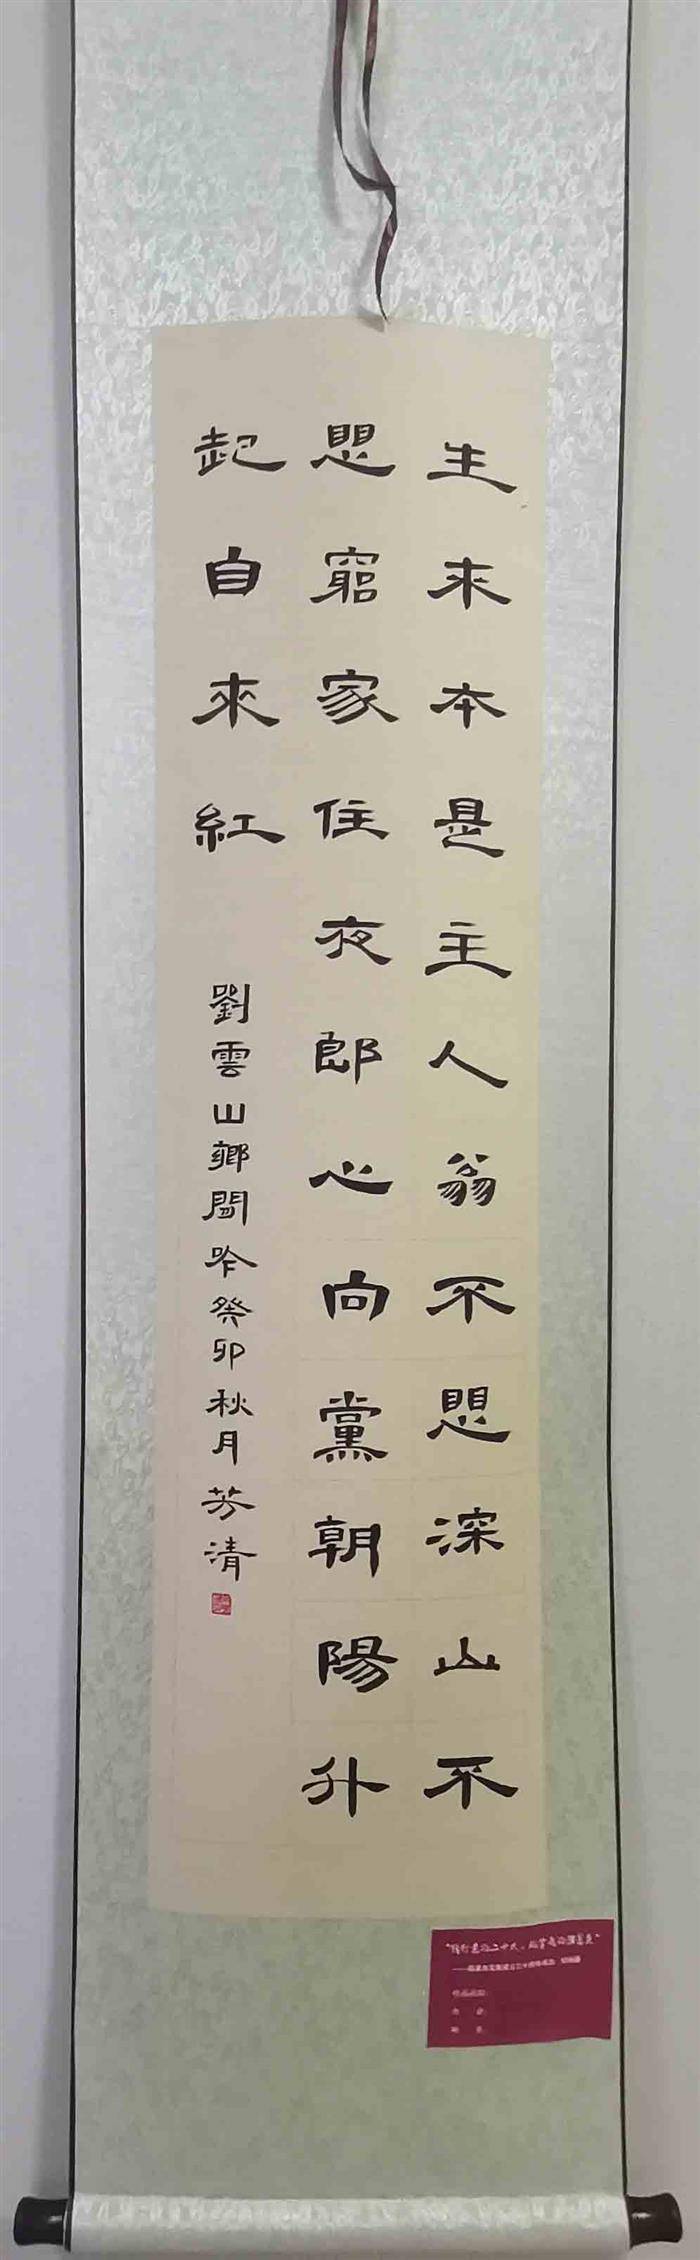 生来本是主人翁不愳深山不
愳窮家住夜郎心向黨朝陽升
起自來紅
劉雲山鄉間吟癸卯秋月芳清